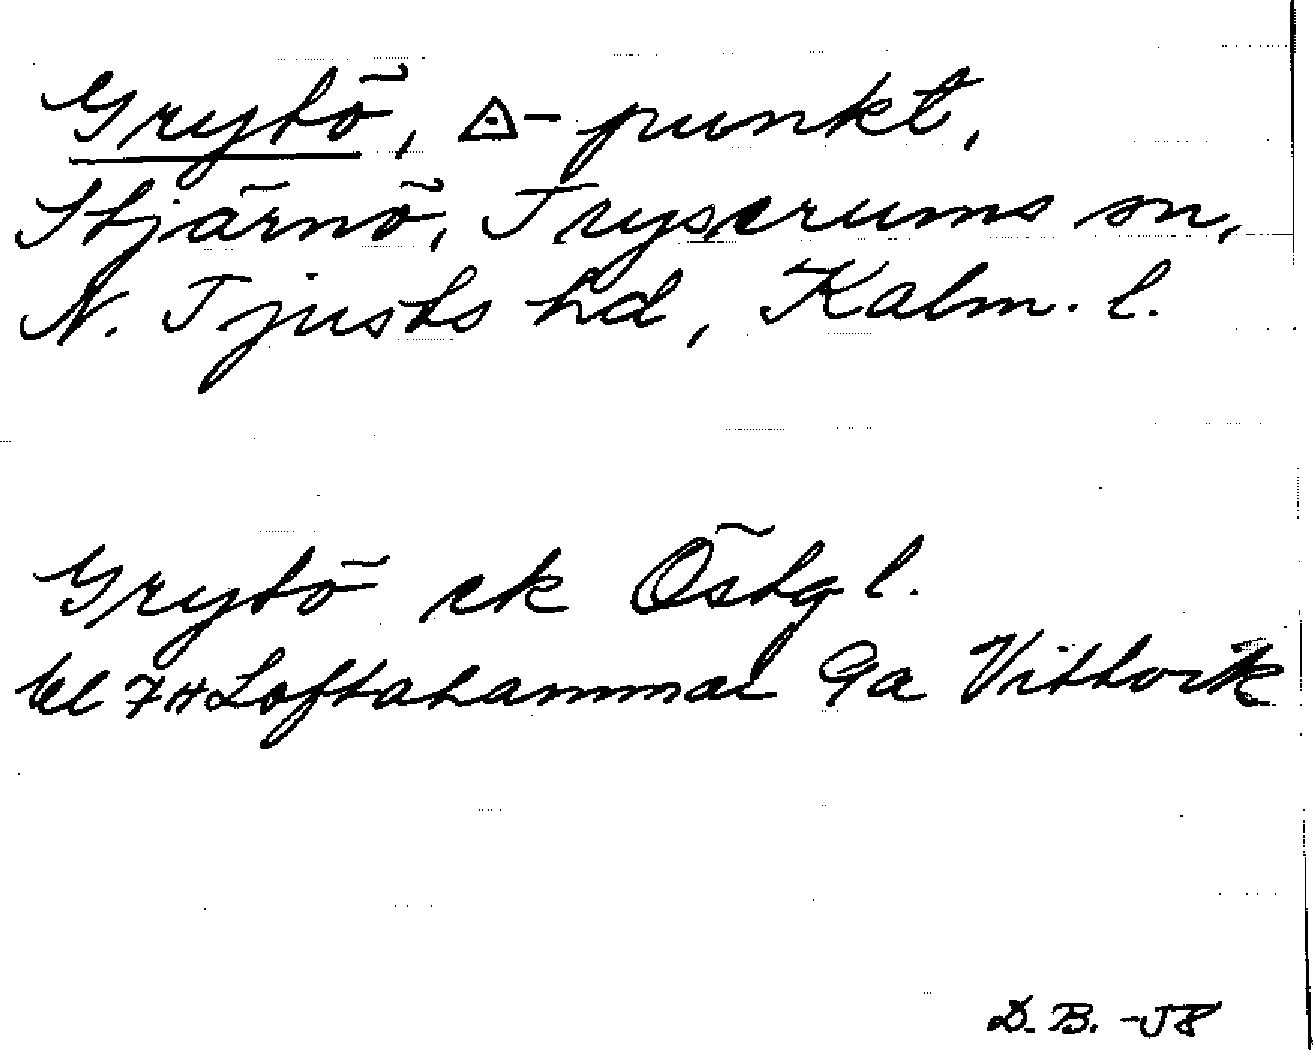 Grytö, △-punkt,
Stjärnö, Tryserums sn,
N. Tjusts hd, Kalm. l.
Grytö ek Östg l.
bl 7H Loftahammar Ga Vittvik
D. B. -58